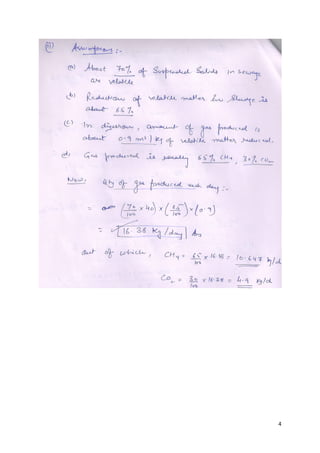 Assumptions :-
a) About 70% of Suspended Solids in Sewage
are volatile
b) Reduction of volatile matter in Sludge is
about 65%
c) In digestion, amount of gas produced is
about 0.9 m³/kg of volatile matter reduced.
d) Gas produced is usually 65% CH₄, 30% CO₂
Now, Qty of gas produced each day :-
= (70/100 × 40) × (65/100) × (0.9)
= 16.38 kg/day Ans
out of which, CH₄ = 65/100 × 16.38 = 10.647 kg/d
CO₂ = 30/100 × 16.38 = 4.9 kg/d
4